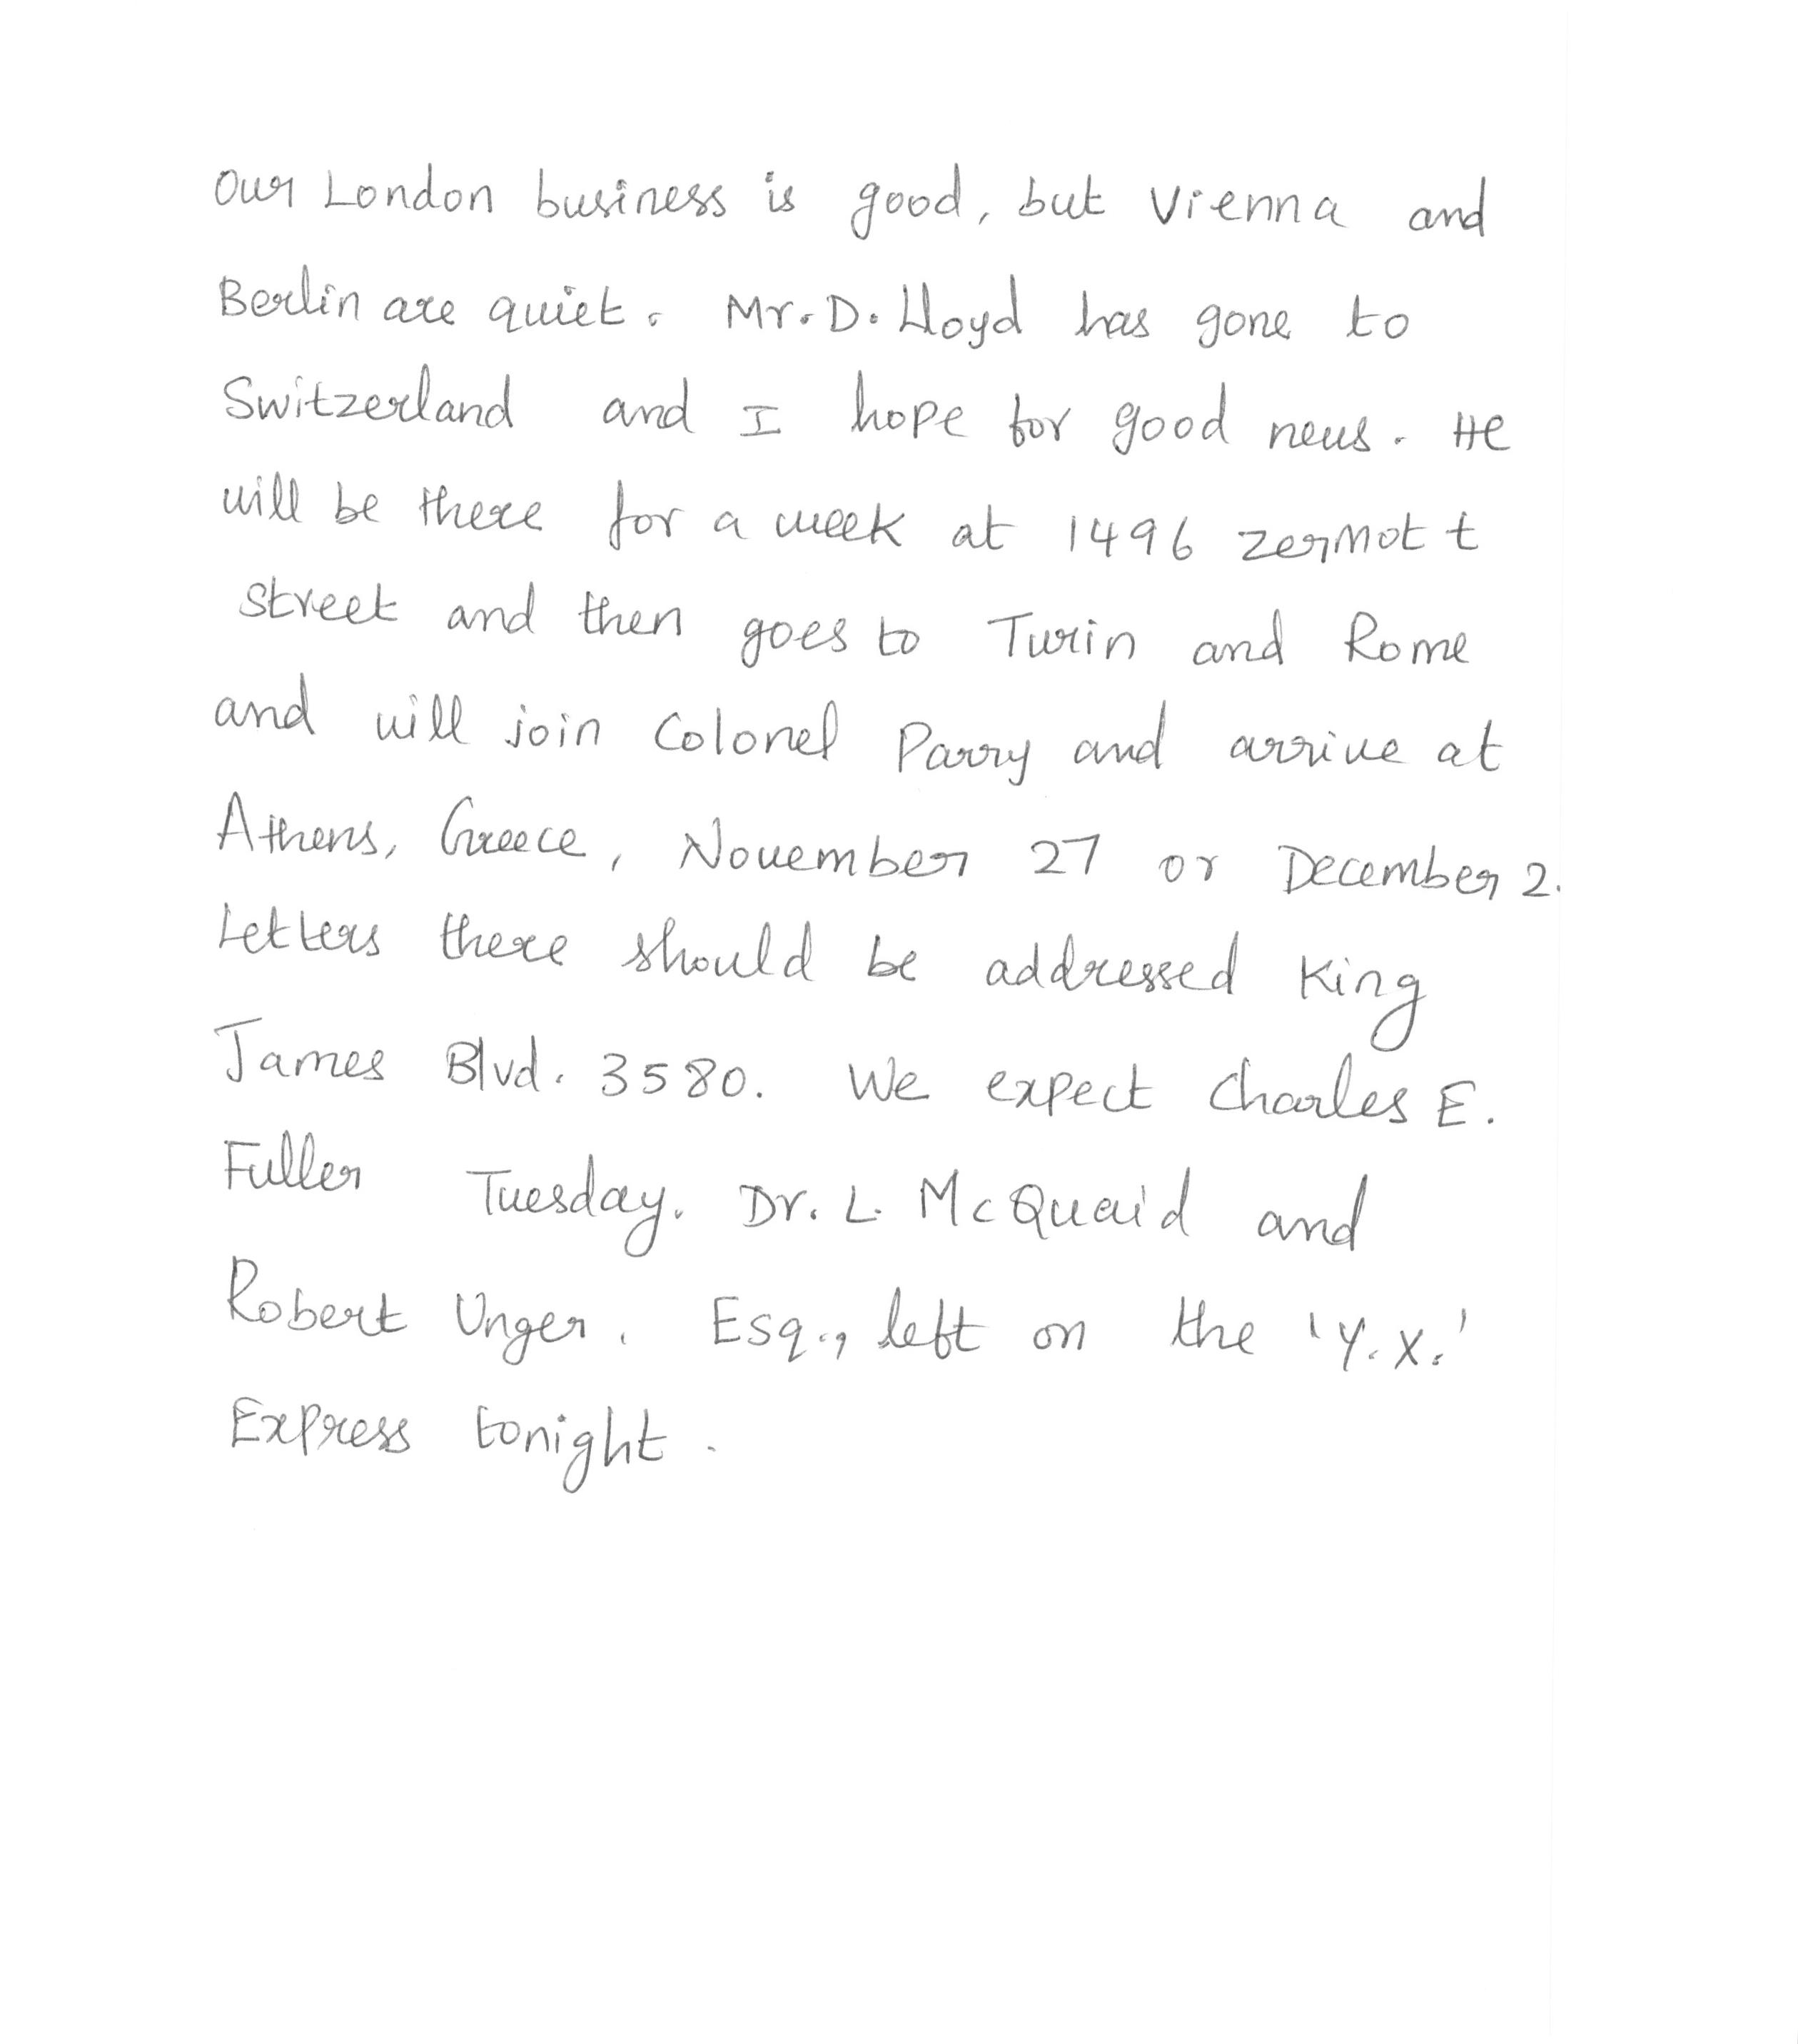 Our London business is good, but Vienna and
Berlin are quiet. Mr. D. Lloyd has gone to
Switzerland and I hope for good news. He
will be there for a week at 1496 zermott
street and then goes to Turin and Rome
and will join Colonel Parry and arrive at
Athens, Greece, November 27 or December 2.
Letters there should be addressed King
James Blvd. 3580. We expect Charles E.
Fuller Tuesday. Dr. L. McQuaid and
Robert Unger. Esq., left on the 'Y.X.'
Express tonight.